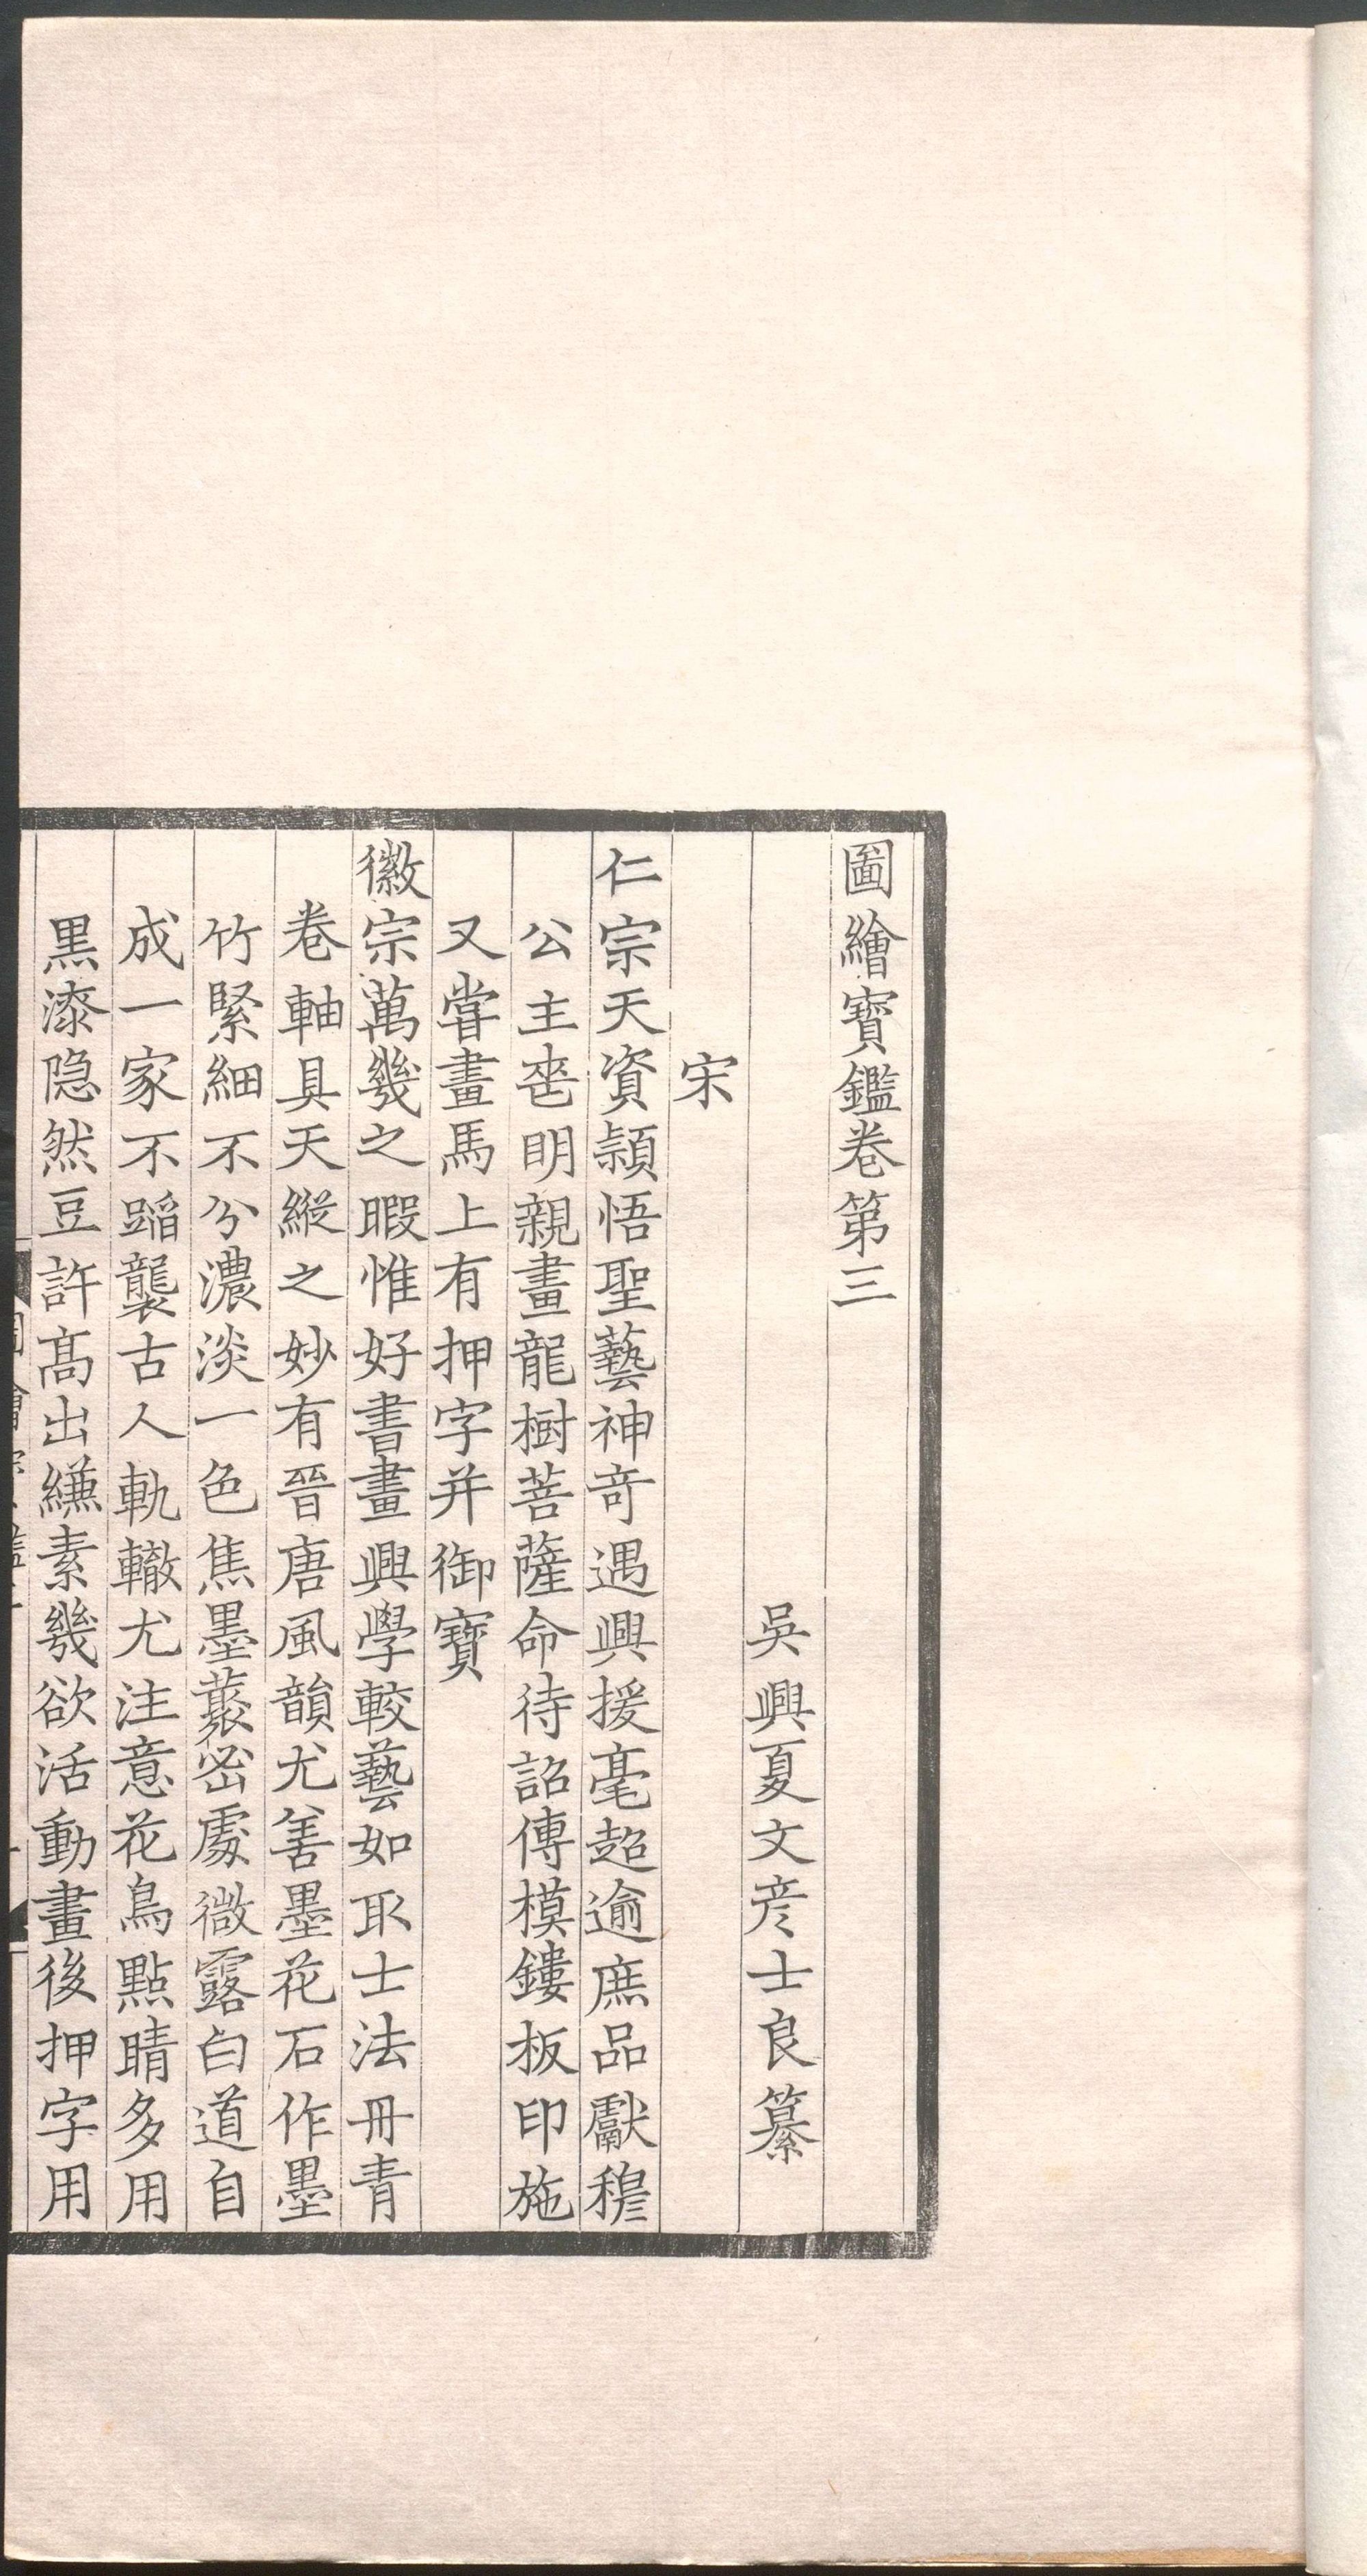 圖繪寶鑑卷第三
吳興夏文彥士良纂
宋
仁宗天資頴悟聖藝神竒遇興援毫超逾庶品獻穆
公主喪明親畫龍樹菩薩命待詔傳模鏤板印施
又嘗畫馬上有押字并御寶
徽宗萬幾之暇惟好書畫興學較藝如取士法冊青
卷軸具天縱之妙有晉唐風韻尤善墨花石作墨
竹緊細不分濃淡一色焦墨叢密處微露白道自
成一家不蹈襲古人軌轍尤注意花鳥點睛多用
黒漆隐然豆許髙出縑素幾欲活動畫後押字用